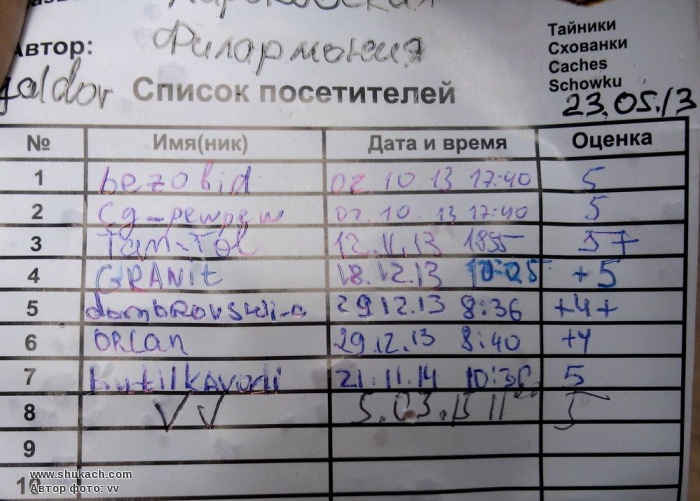 Филармония
Автор:
Тайники
Схованки
Caches
Schowku
galdor Список посетителей 23.05.13
№ Имя(ник) Дата и время Оценка
1 bezobid 02 10 13 17:40 5
2 cg-pewpew 02. 10. 13 17:40 5
3 Tam-Tol 12.11.13 1855 5+
4 GRANit 18.12.13 10:05 +5
5 dombrovski-a 29 12.13 8:36 +4+
6 ORLan 29.12.13 8:40 +4
7 butilkavodi 21.11.14 10:36 5
8 VV 5.03.15 11 5
9
10
www.shukach.com
Автор фото: vv